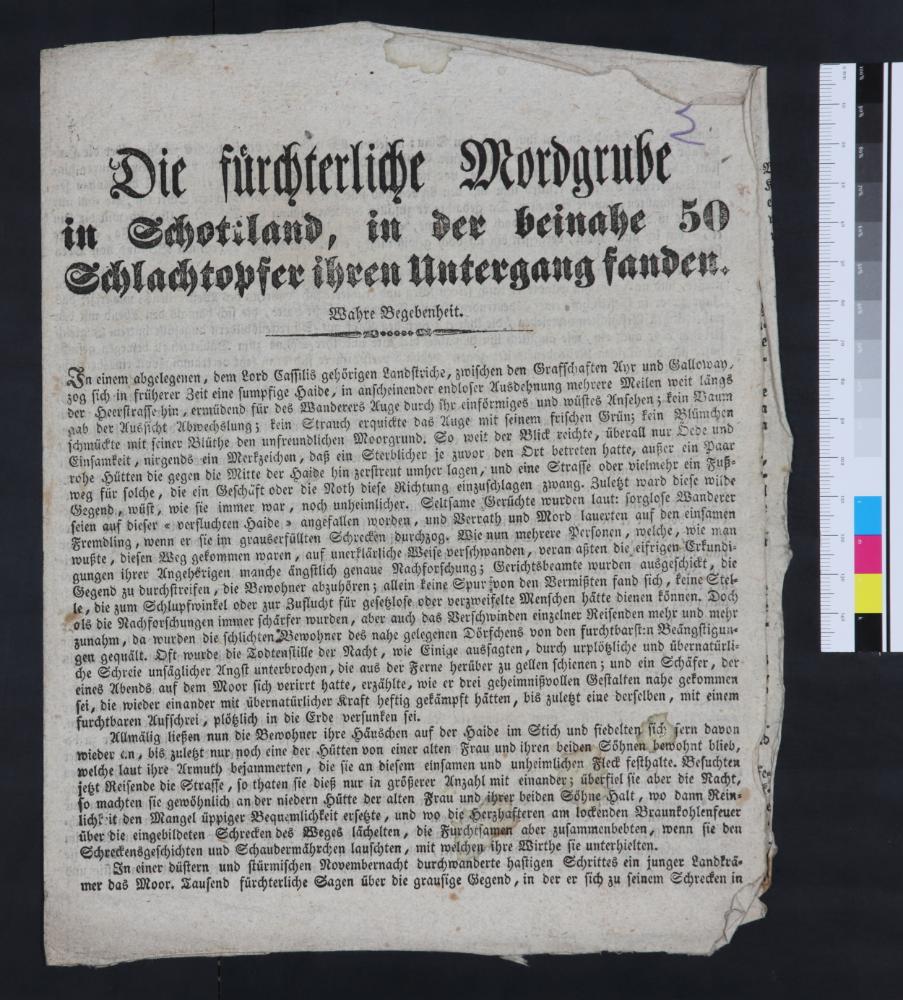 Die fürchterliche Mordgrube
in Schottland, in der beinahe 50
Schlachtopfer ihren Untergang fanden.
Wahre Begebenheit.
In einem abgelegenen, dem Lord Cassilis gehörigen Landstriche, zwischen den Grafschaften Ayr und Galloway,
zog sich in früherer Zeit eine sumpfige Haide, in anscheinender endloser Ausdehnung mehrere Meilen weit längs
der Heerstrasse hin, ermüdend für des Wanderers Auge durch ihr einförmiges und wüstes Ansehen; kein Baum
gab der Aussicht Abwechslung; kein Strauch erquickte das Auge mit seinem frischen Grün; kein Blümchen
schmückte mit seiner Blüthe den unfreundlichen Moorgrund. So weit der Blick reichte, überall nur Oede und
Einsamkeit, nirgends ein Merkzeichen, daß ein Sterblicher je zuvor den Ort betreten hatte, außer ein Paar
rohe Hütten die gegen die Mitte der Haide hin zerstreut umher lagen, und eine Strasse oder vielmehr ein Fuß-
weg für solche, die ein Geschäft oder die Noth diese Richtung einzuschlagen zwang. Zuletzt ward diese wilde
Gegend, wüst, wie sie immer war, noch unheimlicher. Seltsame Gerüchte wurden laut: sorglose Wanderer
seien auf dieser « verfluchten Haide » angefallen worden, und Verrath und Mord lauerten auf den einsamen
Fremdling, wenn er sie im grauserfüllten Schrecken durchzog. Wie nun mehrere Personen, welche, wie man
wußte, diesen Weg gekommen waren, auf unerklärliche Weise verschwanden, veran aßten die eifrigen Erkundi-
gungen ihrer Angehörigen manche ängstlich genaue Nachforschung; Gerichtsbeamte wurden ausgeschickt, die
Gegend zu durchstreifen, die Bewohner abzuhören; allein keine Spur von den Vermißten fand sich, keine Stel-
le, die zum Schlupfwinkel oder zur Zuflucht für gesetzlose oder verzweifelte Menschen hätte dienen können. Doch
als die Nachforschungen immer schärfer wurden, aber auch das Verschwinden einzelner Reisenden mehr und mehr
zunahm, da wurden die schlichten Bewohner des nahe gelegenen Dörfchens von den furchtbarsten Beängstigun-
gen gequält. Oft wurde die Todtenstille der Nacht, wie Einige aussagten, durch urplötzliche und übernatürli-
che Schreie unsäglicher Angst unterbrochen, die aus der Ferne herüber zu gellen schienen; und ein Schäfer, der
eines Abends auf dem Moor sich verirrt hatte, erzählte, wie er drei geheimnißvollen Gestalten nahe gekommen
sei, die wieder einander mit übernatürlicher Kraft heftig gekämpft hätten, bis zuletzt eine derselben, mit einem
furchtbaren Aufschrei, plötzlich in die Erde versunken sei.
Allmälig ließen nun die Bewohner ihre Häuschen auf der Haide im Stich und siedelten sich fern davon
wieder an, bis zuletzt nur noch eine der Hütten von einer alten Frau und ihren beiden Söhnen bewohnt blieb,
welche laut ihre Armuth bejammerten, die sie an diesem einsamen und unheimlichen Fleck festhalte. Besuchten
jetzt Reisende die Strasse, so thaten sie dieß nur in größerer Anzahl mit einander; überfiel sie aber die Nacht,
so machten sie gewöhnlich an der niedern Hütte der alten Frau und ihrer beiden Söhne Halt, wo dann Rein-
lichkeit den Mangel üppiger Bequemlichkeit ersetzte, und wo die Herzhafteren am lockenden Braunkohlenfeuer
über die eingebildeten Schrecken des Weges lächelten, die Furchtsamen aber zusammenbebten, wenn sie den
Schreckensgeschichten und Schaudermährchen lauschten, mit welchen ihre Wirthe sie unterhielten.
In einer düstern und stürmischen Novembernacht durchwanderte hastigen Schrittes ein junger Landkrä-
mer das Moor. Tausend fürchterliche Sagen über die grausige Gegend, in der er sich zu seinem Schrecken in